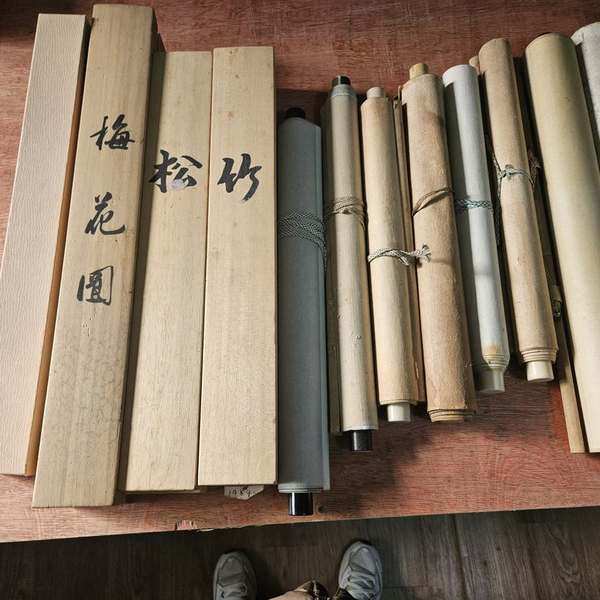 梅花圖
松
竹